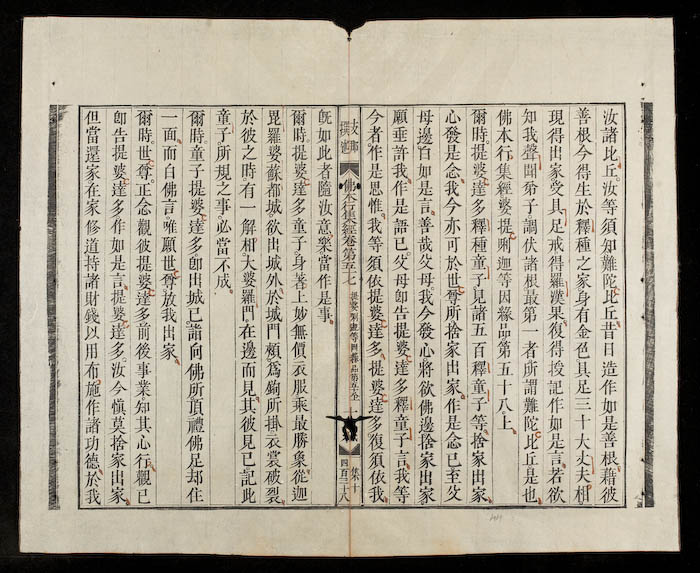 汝諸比丘汝等須知難陀比丘昔日造作如是善根藉彼
善根今得生於釋種之家身有金色具足三十大丈夫相
現得出家受具足戒得羅漢果復得授記作如是言若欲
知我聲聞弟子調伏諸根最第一者所謂難陀比丘是也
佛本行集經婆提唎迦等因緣品第五十八上
爾時提婆達多釋種童子見諸五百釋童子等捨家出家
心發是念我今亦可於世尊所捨家出家作是念已至父
母邊白如是言善哉父母我今發心將欲佛邊捨家出家
願垂許我作是語已父母卽告提婆達多釋童子言我等
今者作是思惟我等須依提婆達多提婆達多復須依我
佛本行集經卷第五十七
集十
四百三十八
旣如此者隨汝意樂當作是事
爾時提婆達多童子身著上妙無價衣服乘最勝象從迦
毘羅婆蘇都城欲出城外於城門頰爲鉤所掛衣裳破裂
於彼之時有一解相大婆羅門在邊而見其彼見已記此
童子所規之事必當不成
爾時童子提婆達多卽出城已詣向佛所頂禮佛足却住
一面而白佛言唯願世尊放我出家
爾時世尊正念觀彼提婆達多前後事業知其心行觀已
卽告提婆達多作如是言提婆達多汝今愼莫捨家出家
但當還家在家修道持諸財錢以用布施作諸功德於我